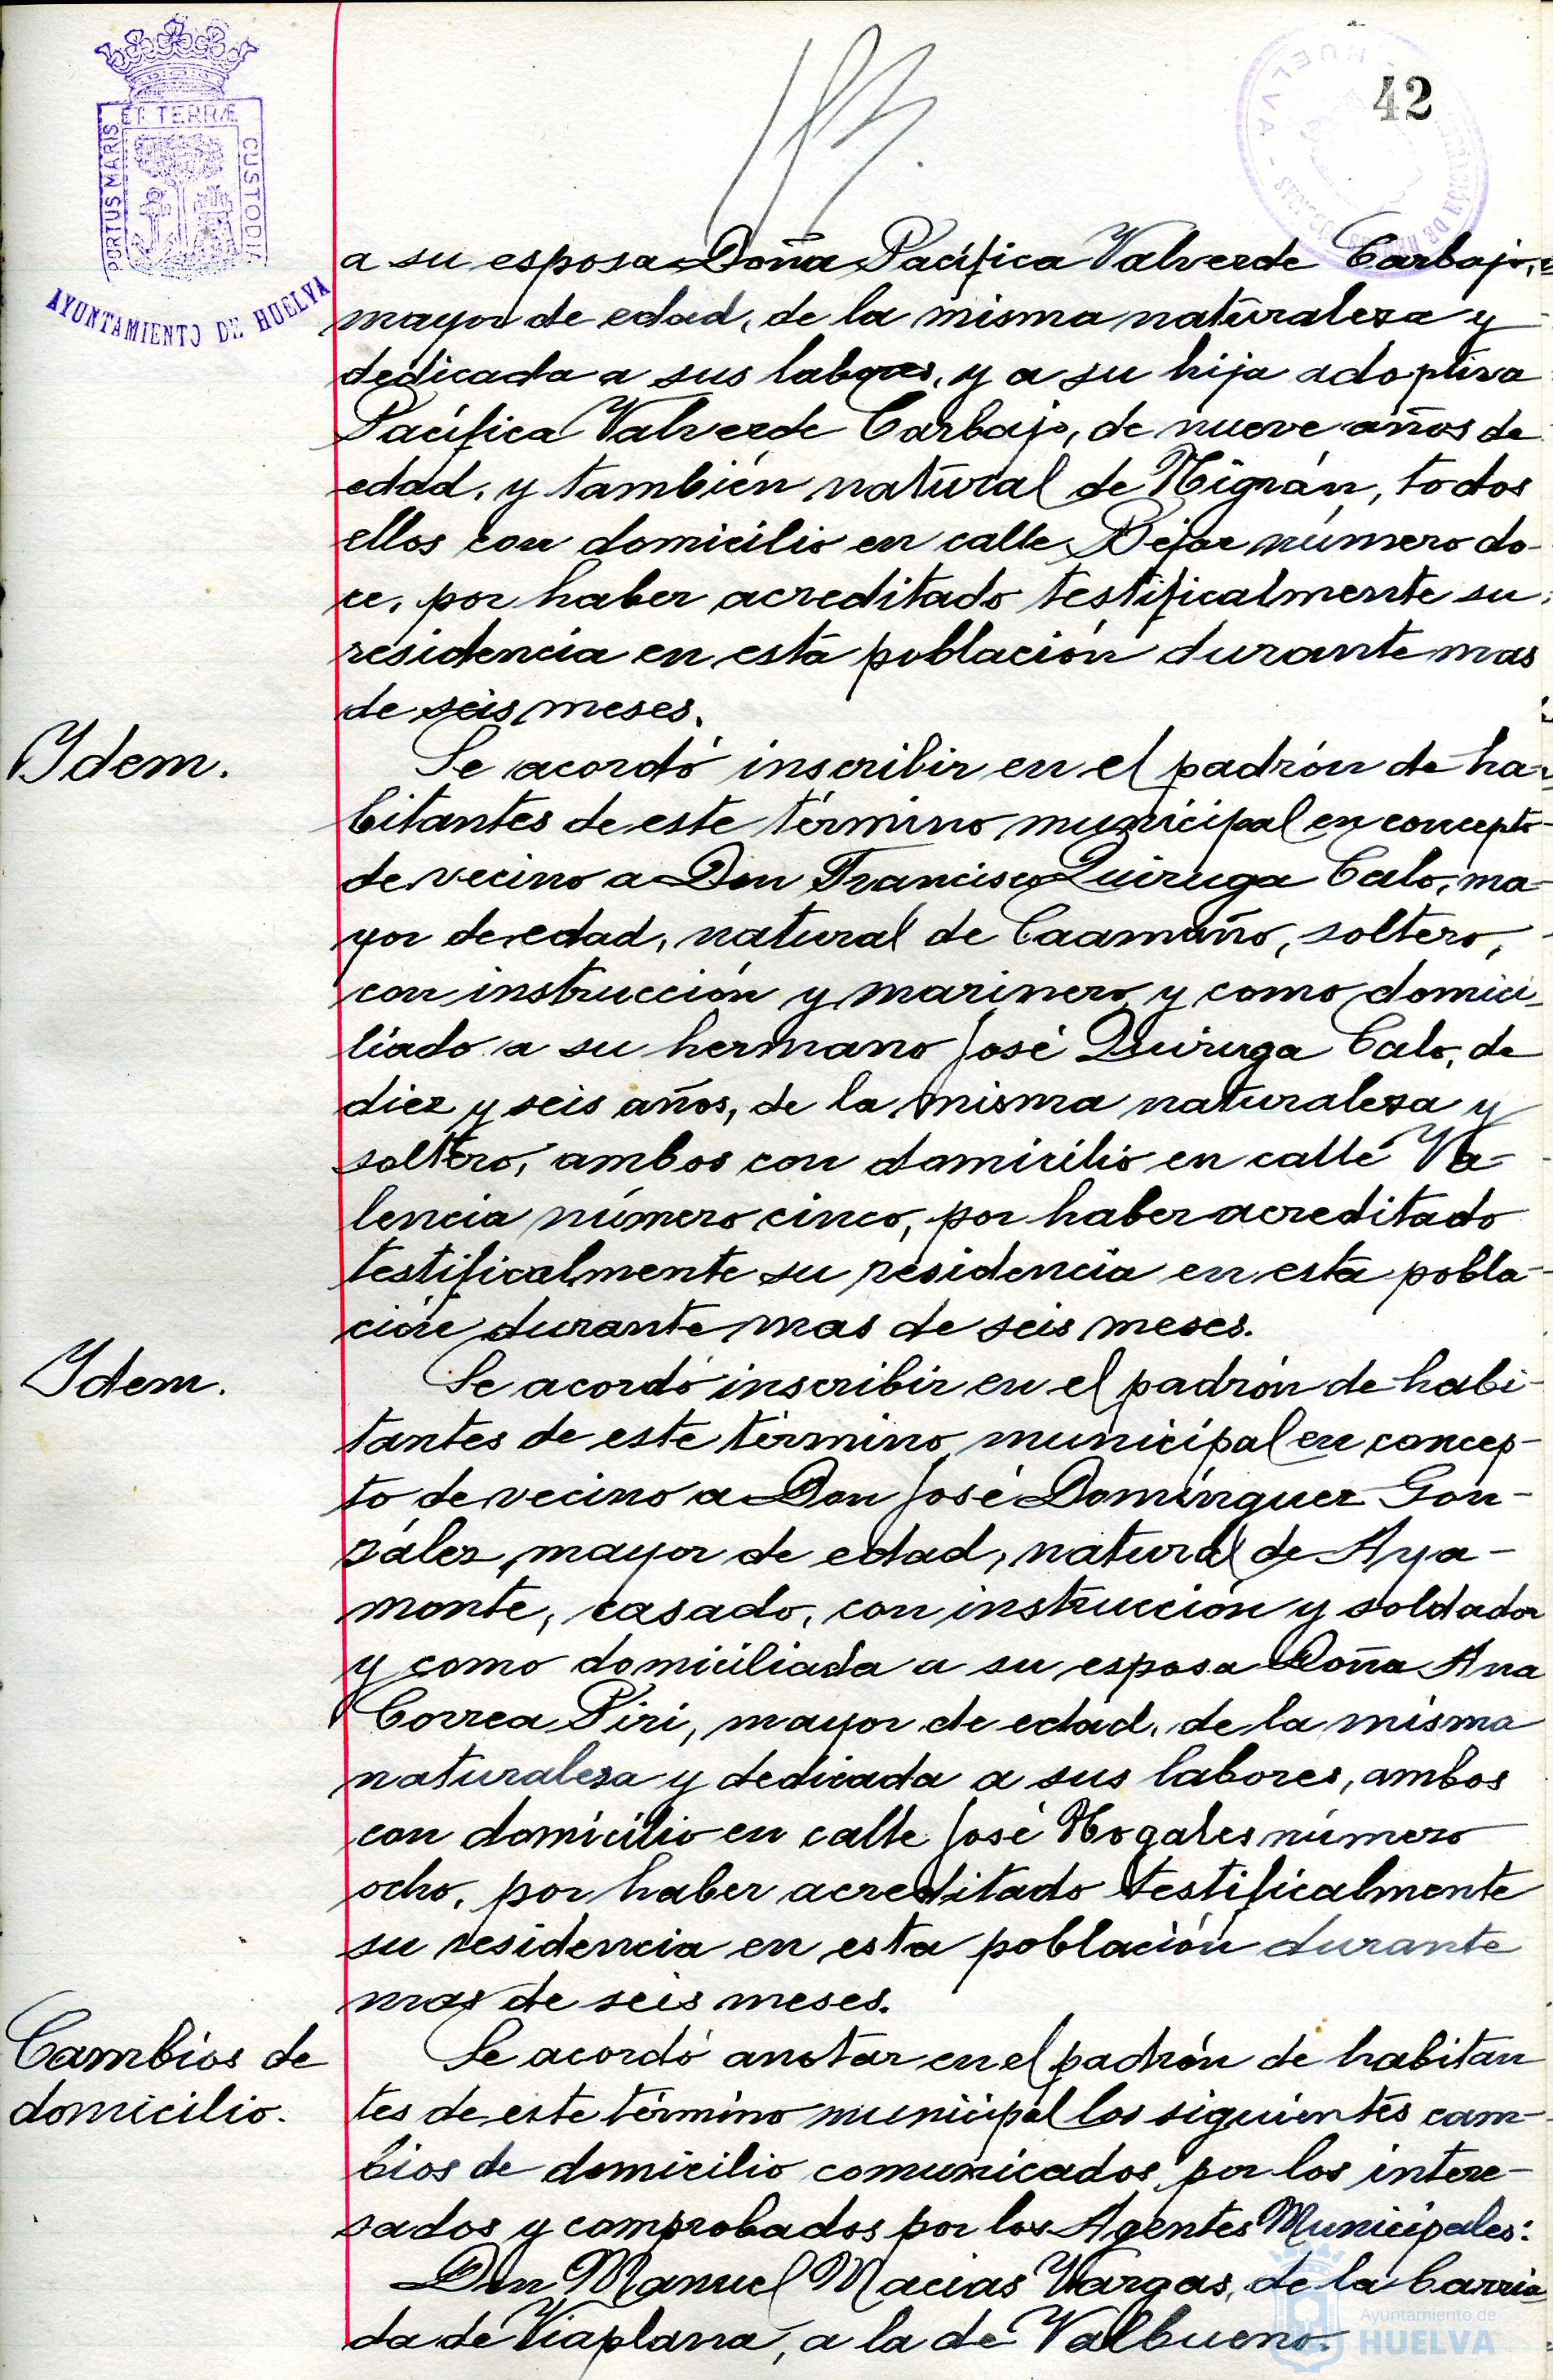 42
ET TERRÆ
PORTUS MARIS
CUSTODIA
AYUNTAMIENTO DE HUELVA
a su esposa Doña Pacífica Valverde Carbajo,
mayor de edad, de la misma naturaleza y
dedicada a sus labores, y a su hija adoptiva
Pacífica Valverde Carbajo, de nueve años de
edad, y también natural de Nigrán, todos
ellos con domicilio en calle Béjar número do-
ce, por haber acreditado testificalmente su
residencia en esta población durante mas
de seis meses.
Idem.
Se acordó inscribir en el padrón de ha-
bitantes de este término municipal en concepto
de vecino a Don Francisco Quiruga Calo, ma-
yor de edad, natural de Caamaño, soltero,
con instrucción y marinero y como domici-
liado a su hermano José Quiruga Calo, de
diez y seis años, de la misma naturaleza y
soltero, ambos con domicilio en calle Va-
lencia número cinco, por haber acreditado
testificalmente su residencia en esta pobla-
ción durante mas de seis meses.
Idem.
Se acordó inscribir en el padrón de habi-
tantes de este término municipal en concep-
to de vecino a Don José Domínguez Gon-
zález, mayor de edad, natural de Aya-
monte, casado, con instrucción y soldador
y como domiciliada a su esposa Doña Ana
Correa Piri, mayor de edad, de la misma
naturaleza y dedicada a sus labores, ambos
con domicilio en calle José Nogales número
ocho, por haber acreditado testificalmente
su residencia en esta población durante
mas de seis meses.
Cambios de
domicilio.
Se acordó anotar en el padrón de habitan
tes de este término municipal los siguientes cam-
bios de domicilio comunicados por los intere-
sados y comprobados por los Agentes Municipales:
Don Manuel Macias Vargas, de la barria
da de Viaplana, a la de Valbueno.
Ayuntamiento de
HUELVA